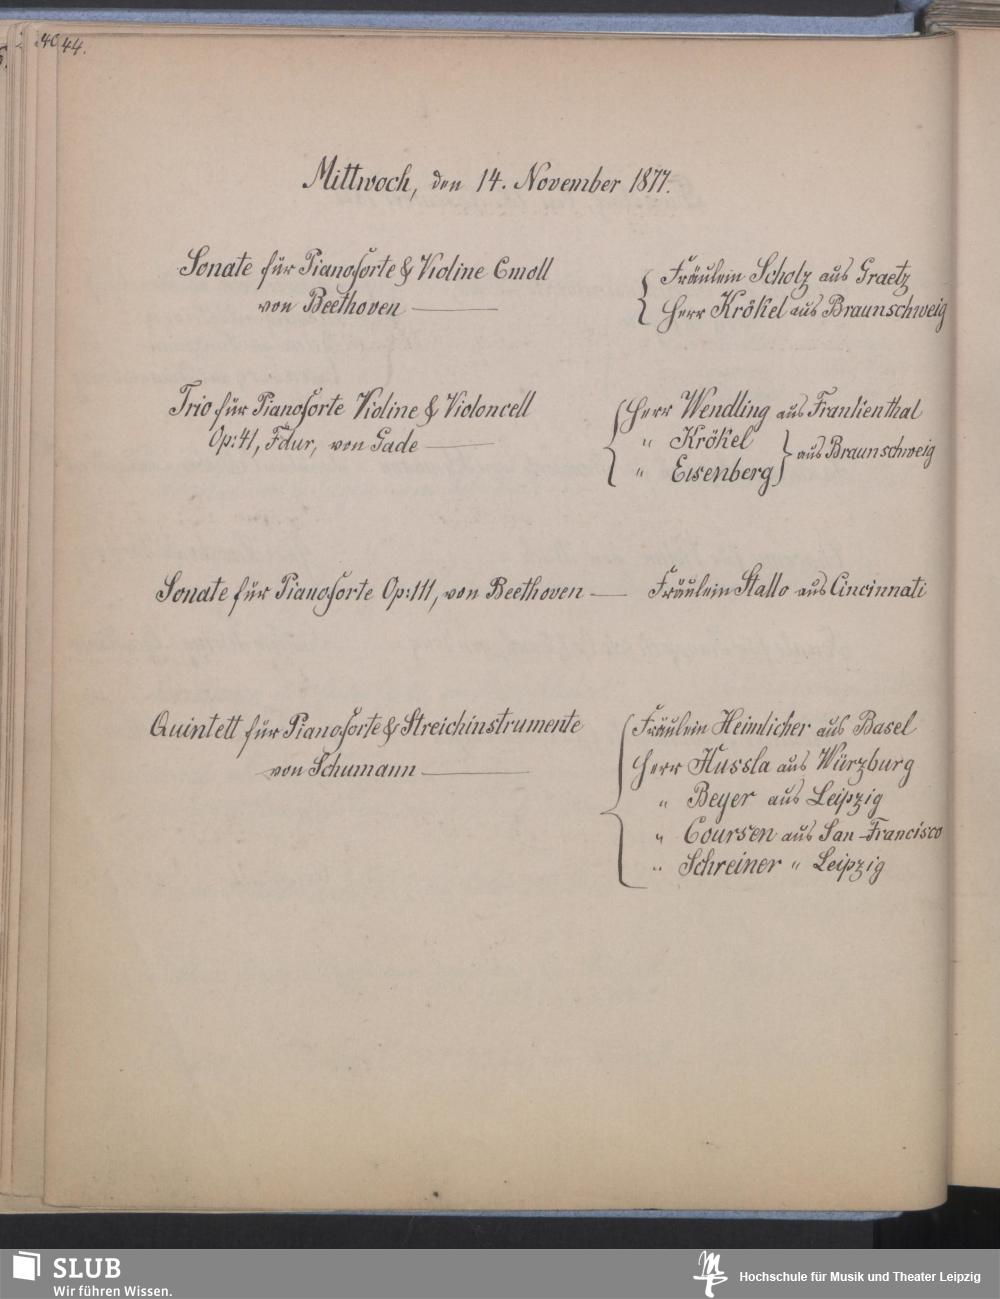 44.
Mittwoch, den 14. November 1877.
Sonate für Pianoforte & Violine Cmoll
von Beethoven
Fräulein Scholz aus Graetz
Herr Krökel aus Braunschweig
Trio für Pianoforte Violine & Violoncell
Op: 41, Fdur, von Gade
Herr Wendling aus Frankenthal
" Krökel
" Eisenberg
aus Braunschweig
Sonate für Pianoforte Op: 111, von Beethoven
Fräulein Stallo aus Cincinnati
Quintett für Pianoforte & Streichinstrumente
von Schumann
Fräulein Heimlicher aus Basel
Herr Hussla aus Würzburg
" Beyer aus Leipzig
" Coursen aus San-Francisco
" Schreiner " Leipzig
SLUB
Wir führen Wissen.
Hochschule für Musik und Theater Leipzig